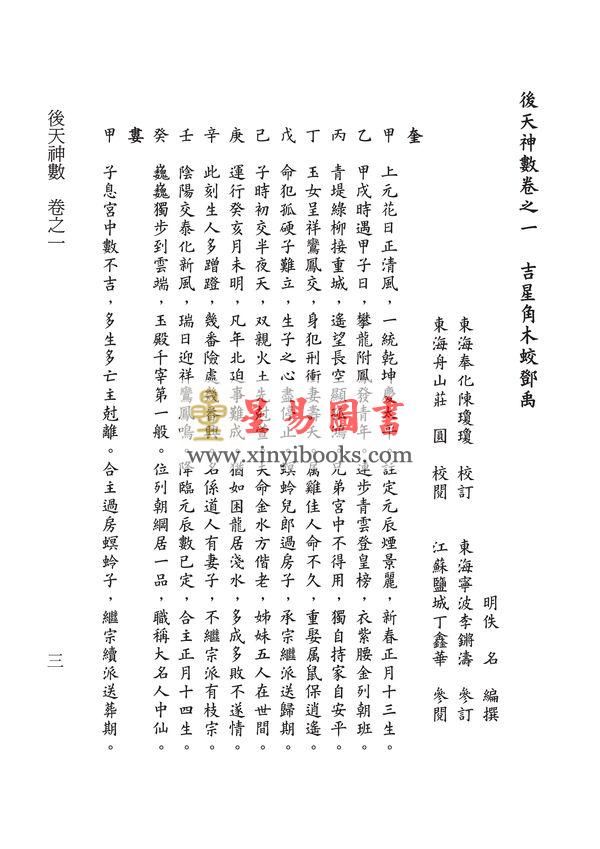 後天神數卷之一　吉星角木蛟鄧禹
明佚　名　編撰
東海奉化陳瓊瓊　校訂　東海寧波李鏘濤　參訂
東海舟山莊　圓　校閱　江蘇鹽城丁鑫華　參閱
奎
甲　上元花日正清風，一統乾坤慶太平。註定元辰煙景麗，新春正月十三生。
乙　甲戌時遇甲子日，攀龍附鳳發青年。連步青雲登皇榜，衣紫腰金列朝班。
丙　青堤綠柳接重城，遙望長空顯。兄弟宮中不得用，獨自持家自安平。
丁　玉女呈祥鸞鳳交，身犯刑衝妻壽夭。属雞佳人命不久，重娶属鼠保逍遙。
戊　命犯孤硬子難立，生子之心盡停止。螟蛉兒郎過房子，承宗繼派送歸期。
己　子時初交半夜天，双親火土先。夫命金水方偕老，姊妹五人在世間。
庚　運行癸亥月未明，凡年北迫事難成。猶如困龍居淺水，多成多敗不遂情。
辛　此刻生人多蹭蹬，幾番險處幾番。名係道人有妻子，不繼宗派有枝宗。
壬　陰陽交泰化新風，瑞日迎祥鸞鳳鳴。降臨元辰數已定，合主正月十四生。
癸　巍巍獨步到雲端，玉殿千宰第一般。位列朝綱居一品，職稱大名人中仙。
婁
甲　子息宮中數不吉，多生多亡主尅離。合主過房螟蛉子，繼宗續派送葬期。
後天神數　卷之一
三
星易圖書
www.xinyibooks.com